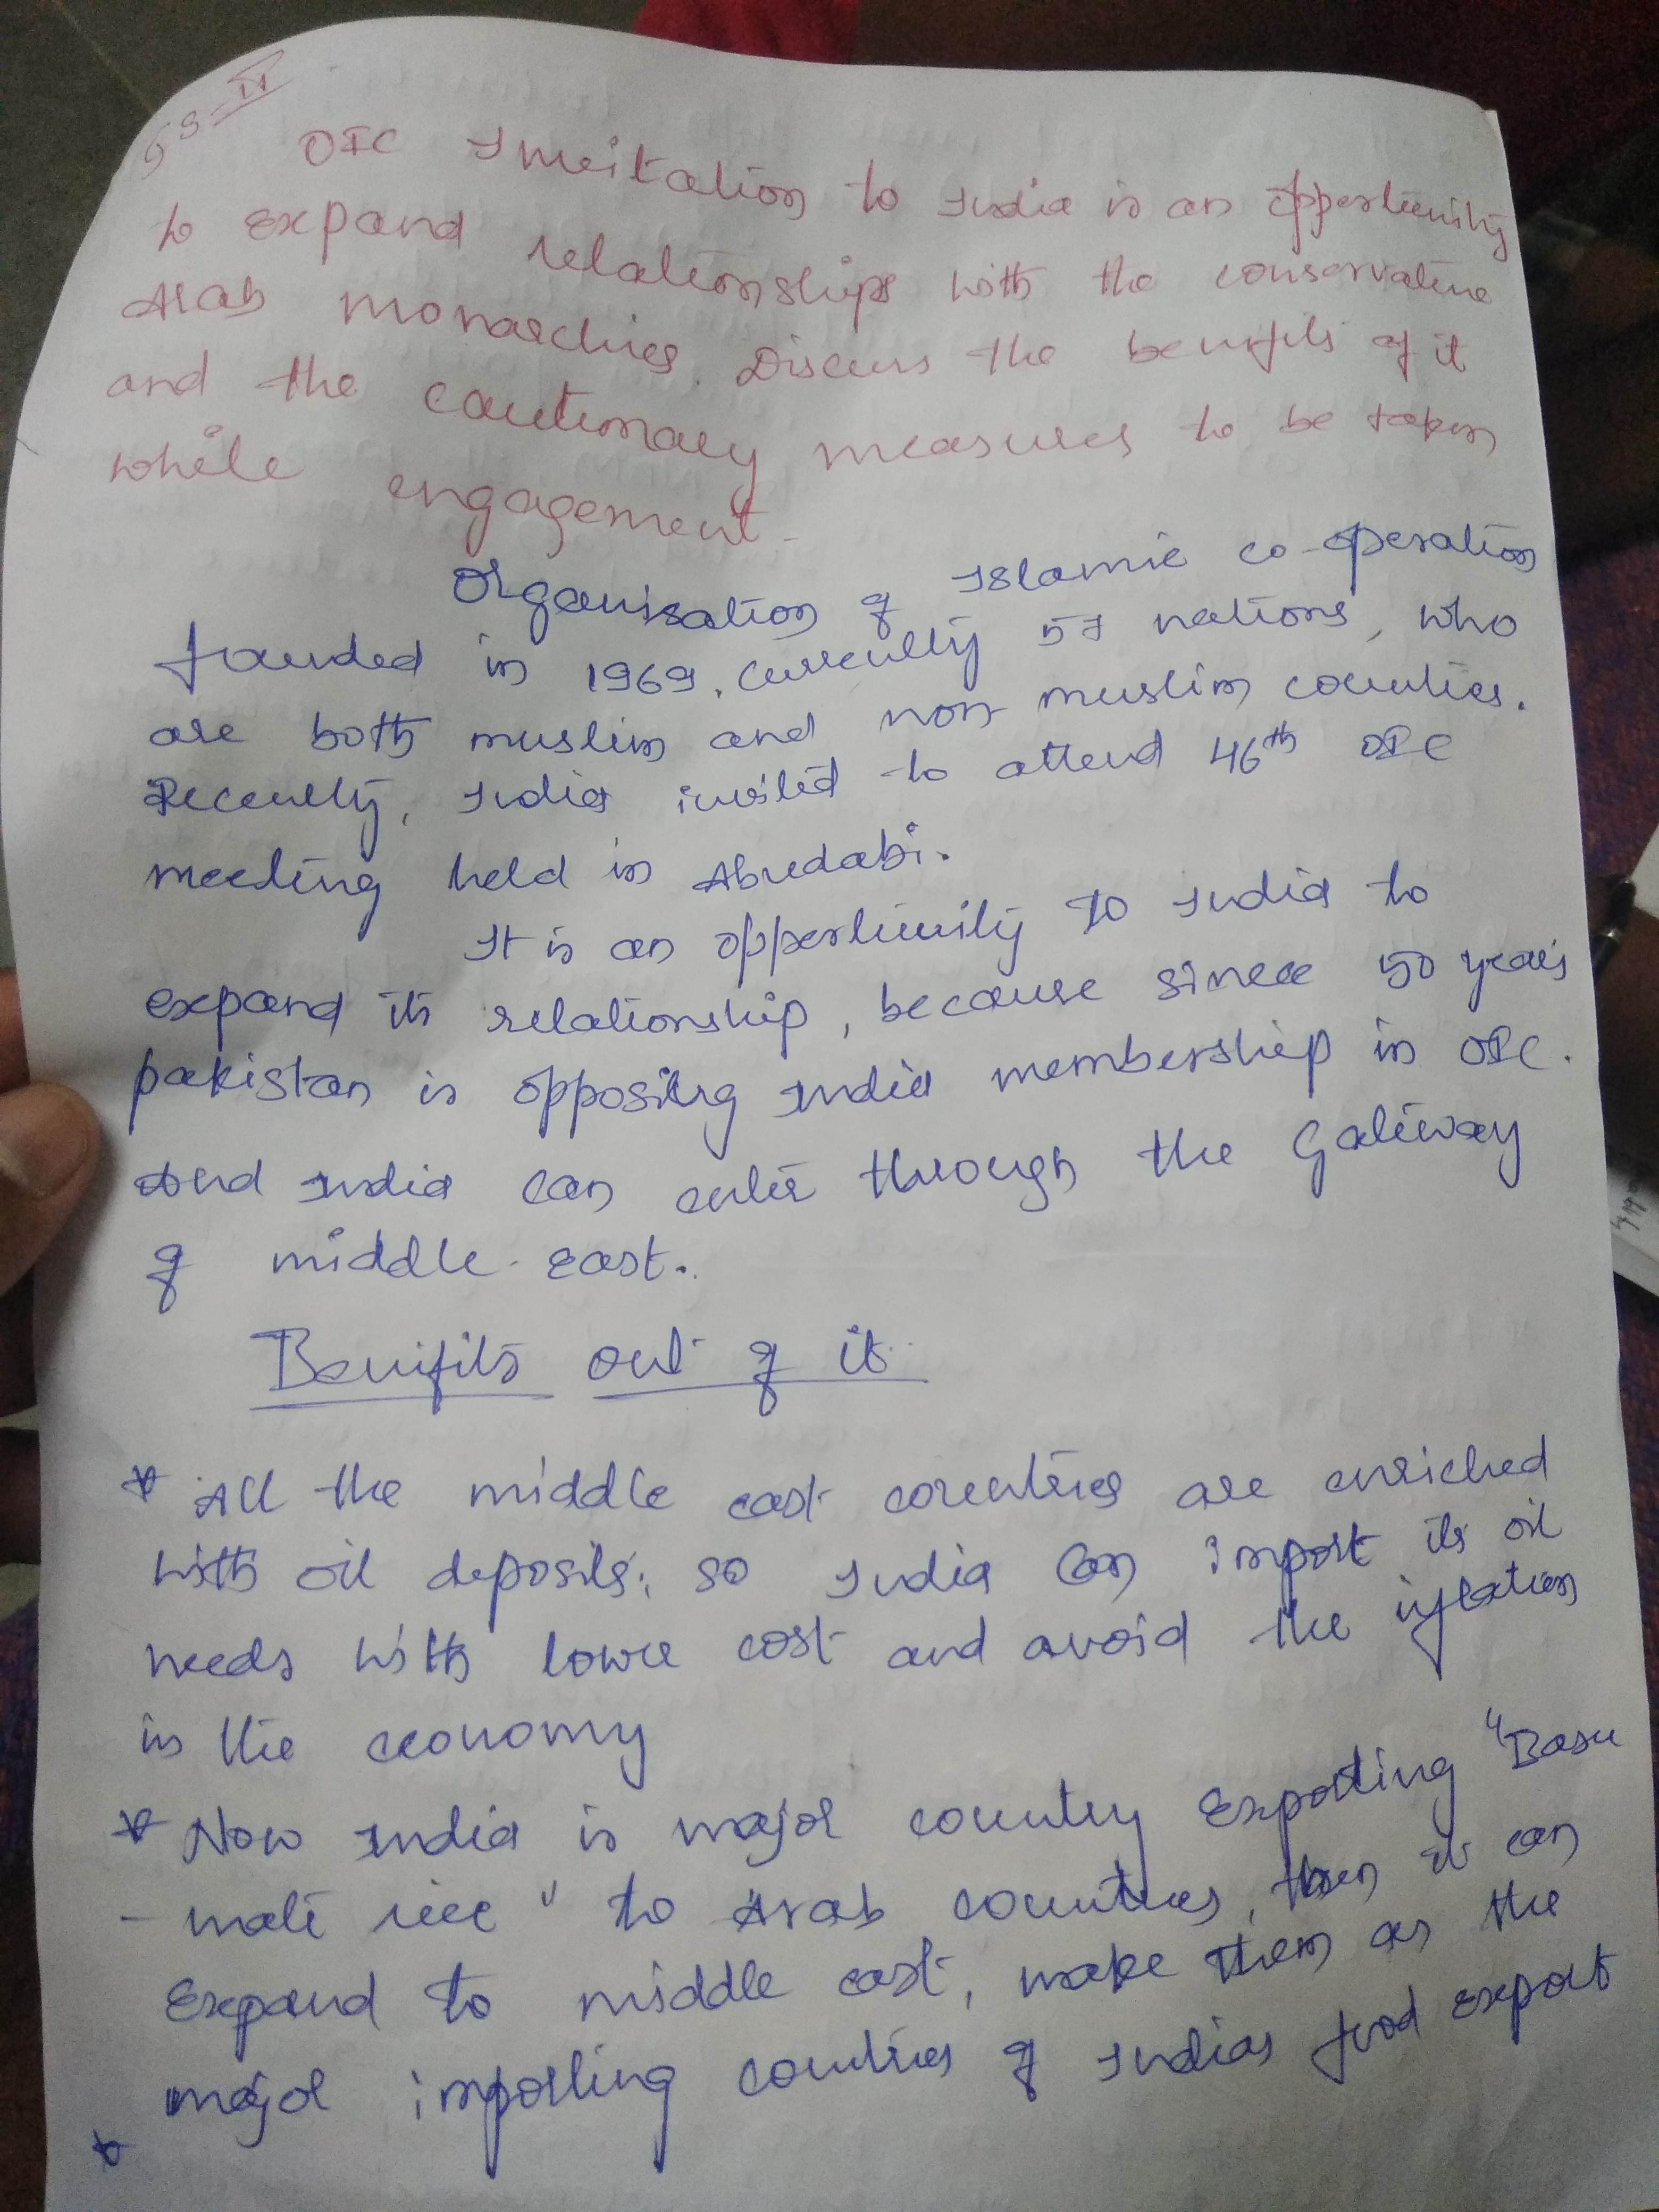 GS-II
OIC Invitation to India is an opportunity
to expand relationships with the conservative
Arab monarchies. Discuss the benifits of it
and the cautionary measures to be taken
while engagement.
Organisation of Islamic co-operation
founded in 1969. currently 57 nations, who
are both muslim and non muslim counties.
Recently, India invited to attend 46th OIC
meeting held in Abudabi.
It is an opportunity to India to
expand its relationship, because since 50 years
pakistan is opposing India membership in OIC.
And India can enter through the Gateway
of middle-east.
Benifits out of it
* All the middle east countries are enriched
with oil deposits, so India can import its oil
needs with lower cost and avoid the inflation
in the economy
* Now India is major country Exporting "Bas
- mati rice" to Arab countries, then it can
Expand to middle east, make them as the
major importing countries of Indias food export
*